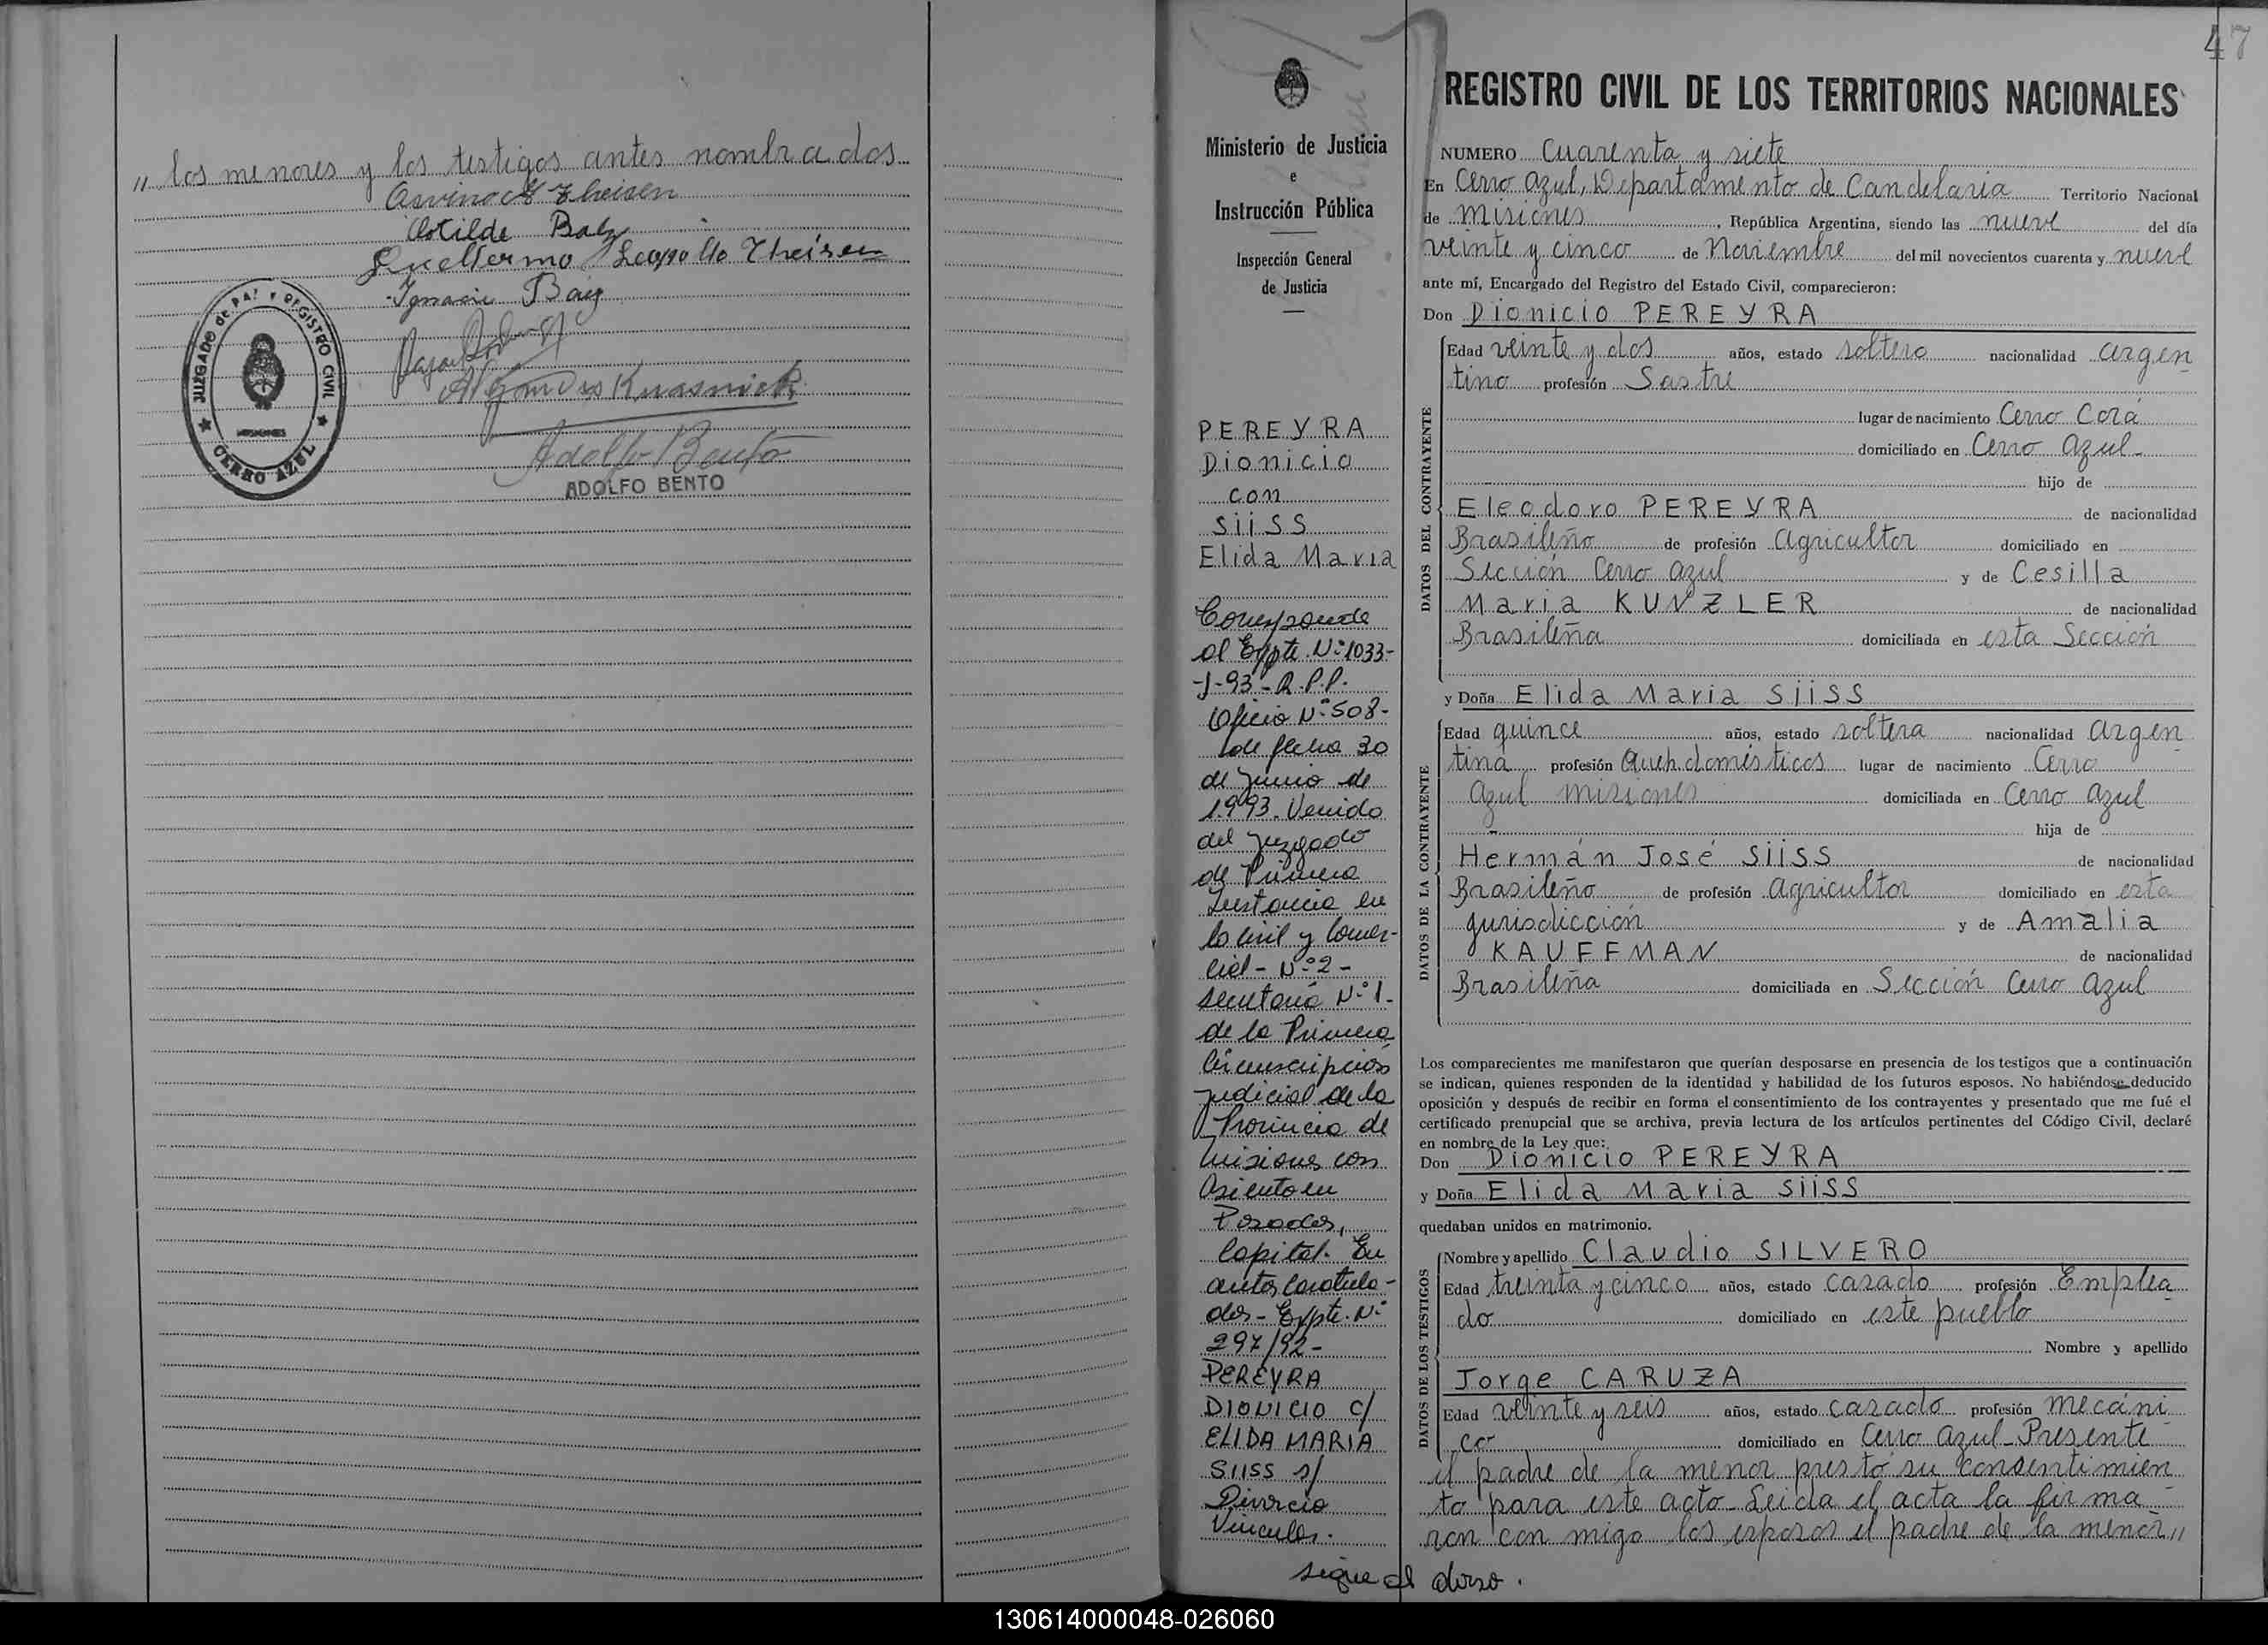 „ los menores y los testigos antes nombrados
Arvino Theisen
Clotilde Balz
Guellermo Leopoldo Theisen
Ignacio
Krasnick
Adolfo Bento
ADOLFO BENTO
JUZGADO de PAZ Y REGISTRO CIVIL
MISIONES
CERRO AZUL
47
Ministerio de Justicia
e
Instrucción Pública
Inspección General
de Justicia
PEREYRA
Dionicio
con
SiiSS
Elida Maria
Corresponde
al Expte. Nº 1033-
-J-93-R.P.P.
Oficio Nº 508-
de fecha 30
de Junio de
1.993. Venido
del Juzgado
de Primera
Instancia en
lo Civil y Comer-
cial - Nº 2 -
Secretaría Nº 1-
de la Primera
Circunscripción
judicial de la
Provincia de
Misiones con
Asiento en
Posadas,
Capital. En
autos Caratula-
dos - Expte. Nº
297/92-
PEREYRA
DIONICIO c/
ELIDA MARIA
SIISS s/
Divorcio
Vincular.
sigue al dorso.
REGISTRO CIVIL DE LOS TERRITORIOS NACIONALES
NUMERO Cuarenta y siete
En Cerro Azul, Departamento de Candelaria Territorio Nacional
de Misiones, República Argentina, siendo las nueve del día
veinte y cinco de Noviembre del mil novecientos cuarenta y nueve
ante mí, Encargado del Registro del Estado Civil, comparecieron:
Don Dionicio PEREYRA
DATOS DEL CONTRAYENTE
Edad veinte y dos años, estado soltero nacionalidad argen
tino profesión Sastre
lugar de nacimiento Cerro Corá
domiciliado en Cerro Azul-
hijo de
Eleodoro PEREYRA de nacionalidad
Brasileño de profesión Agricultor domiciliado en
Sección Cerro Azul y de Cesilla
Maria KUNZLER de nacionalidad
Brasileña domiciliada en esta Sección
y Doña Elida Maria SiiSS
DATOS DE LA CONTRAYENTE
Edad quince años, estado soltera nacionalidad argen
tina profesión Queh. domésticos lugar de nacimiento Cerro
Azul Misiones domiciliada en Cerro Azul
hija de
Hermán José SiiSS de nacionalidad
Brasileño de profesión Agricultor domiciliado en esta
jurisdicción y de Amalia
KAUFFMAN de nacionalidad
Brasileña domiciliada en Sección Cerro Azul
Los comparecientes me manifestaron que querían desposarse en presencia de los testigos que a continuación
se indican, quienes responden de la identidad y habilidad de los futuros esposos. No habiéndose deducido
oposición y después de recibir en forma el consentimiento de los contrayentes y presentado que me fué el
certificado prenupcial que se archiva, previa lectura de los artículos pertinentes del Código Civil, declaré
en nombre de la Ley que:
Don Dionicio PEREYRA
y Doña Elida Maria SiiSS
quedaban unidos en matrimonio.
DATOS DE LOS TESTIGOS
Nombre y apellido Claudio SILVERO
Edad treinta y cinco años, estado casado profesión Emplea
do domiciliado en este pueblo
Nombre y apellido
Jorge CARUZA
Edad veinte y seis años, estado casado profesión mecáni
co domiciliado en Cerro Azul - Presente
el padre de la menor prestó su consentimien
to para este acto - Leida el acta la firma
ron con migo los esposos el padre de la menor „
130614000048-026060